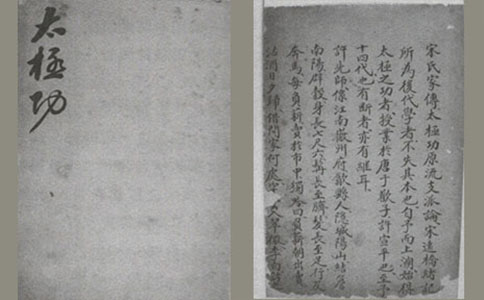 太極功
宋氏家傳太極功原流支派論宋遠橋緒記
所為後代學者不失其本也自予而上溯始得
太極之功者授業於唐于歡子許宣平也至予
十四代也有斷者亦有繼耳
許先師係江南徽州府歙縣人隱城陽山結簷
南陽辟穀身長七尺六髯長至臍髮長至足行及
奔馬每負薪賣於市中獨吟曰負薪朝出賣
沽酒日夕歸借問家何處穿入翠微李